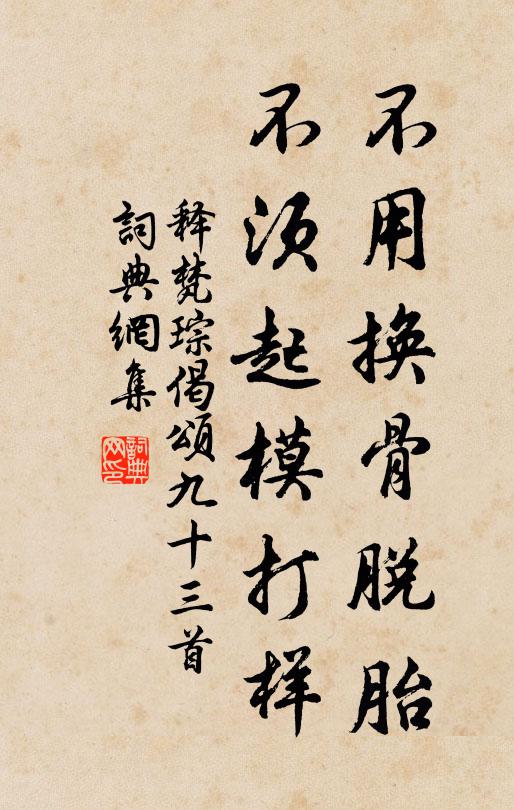 不用换骨脱胎
不须起模打样
释梵琮偈颂九十三首
詞典網集
詞典网印